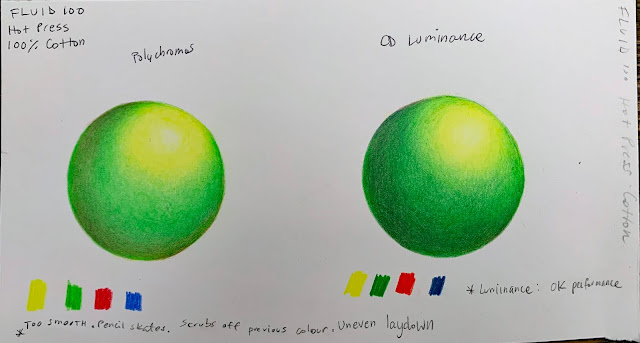 FLUID 100
Hot Press
100% Cotton
Polychromos
CD Luminance
* Luminance: OK performance
* Too smooth. Pencil skates. Scrubs off previous colour. Uneven laydown
FLUID 100 HOT PRESS COTTON